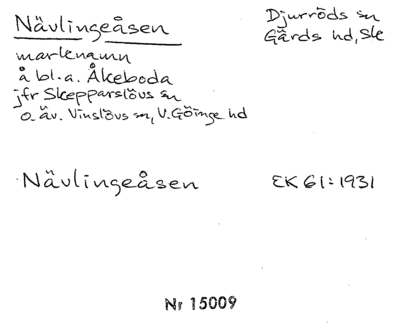 Nävlingeåsen
Djurröds sn
Gärds hd, Sk
marknamn
å bl.a. Åkeboda
jfr Skepparslövs sn
o. äv. Vinslövs sn, V. Göinge hd
Nävlingeåsen
EK 61:1931
Nr 15009